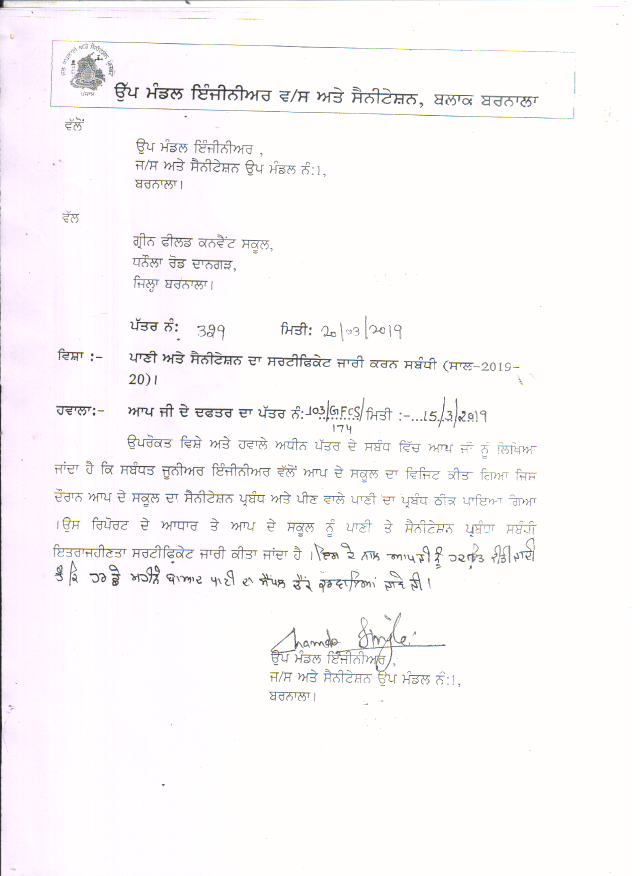 ਉੱਪ ਮੰਡਲ ਇੰਜੀਨੀਅਰ ਵ/ਸ ਅਤੇ ਸੈਨੀਟੇਸ਼ਨ, ਬਲਾਕ ਬਰਨਾਲਾ
ਵੱਲੋਂ
ਉਪ ਮੰਡਲ ਇੰਜੀਨੀਅਰ ,
ਜ/ਸ ਅਤੇ ਸੈਨੀਟੇਸ਼ਨ ਉਪ ਮੰਡਲ ਨੰ:1,
ਬਰਨਾਲਾ।
ਵੱਲ
ਗ੍ਰੀਨ ਫੀਲਡ ਕਨਵੈਂਟ ਸਕੂਲ,
ਧਨੌਲਾ ਰੋਡ ਦਾਨਗੜ,
ਜਿਲ੍ਹਾ ਬਰਨਾਲਾ।
ਪੱਤਰ ਨੰ: 399 ਮਿਤੀ: 20/03/2019
ਵਿਸ਼ਾ :- ਪਾਣੀ ਅਤੇ ਸੈਨੀਟੇਸ਼ਨ ਦਾ ਸਰਟੀਫਿਕੇਟ ਜਾਰੀ ਕਰਨ ਸਬੰਧੀ (ਸਾਲ-2019-
20)।
ਹਵਾਲਾ:- ਆਪ ਜੀ ਦੇ ਦਫਤਰ ਦਾ ਪੱਤਰ ਨੰ:-103/GFCS/ ਮਿਤੀ :-...15/3/2019
174
ਉਪਰੋਕਤ ਵਿਸ਼ੇ ਅਤੇ ਹਵਾਲੇ ਅਧੀਨ ਪੱਤਰ ਦੇ ਸਬੰਧ ਵਿੱਚ ਆਪ ਜੀ ਨੂੰ ਲਿਖਿਆ
ਜਾਂਦਾ ਹੈ ਕਿ ਸਬੰਧਤ ਜੂਨੀਅਰ ਇੰਜੀਨੀਅਰ ਵੱਲੋਂ ਆਪ ਦੇ ਸਕੂਲ ਦਾ ਵਿਜਿਟ ਕੀਤਾ ਗਿਆ ਜਿਸ
ਦੌਰਾਨ ਆਪ ਦੇ ਸਕੂਲ ਦਾ ਸੈਨੀਟੇਸ਼ਨ ਪ੍ਰਬੰਧ ਅਤੇ ਪੀਣ ਵਾਲੇ ਪਾਣੀ ਦਾ ਪ੍ਰਬੰਧ ਠੀਕ ਪਾਇਆ ਗਿਆ
।ਉਸ ਰਿਪੋਰਟ ਦੇ ਆਧਾਰ ਤੇ ਆਪ ਦੇ ਸਕੂਲ ਨੂੰ ਪਾਣੀ ਤੇ ਸੈਨੀਟੇਸਨ ਪ੍ਰਬੰਧਾ ਸਬੰਧੀ
ਇਤਰਾਜਹੀਣਤਾ ਸਰਟੀਫਿਕੇਟ ਜਾਰੀ ਕੀਤਾ ਜਾਂਦਾ ਹੈ । ਇਸ ਦੇ ਨਾਲ ਆਪ ਜੀ ਨੂੰ ਹਦਾਇਤ ਕੀਤੀ ਜਾਂਦੀ
ਹੈ ਕਿ ਹਰ ਛੇ ਮਹੀਨੇ ਬਾਅਦ ਪਾਣੀ ਦਾ ਸੈਂਪਲ ਚੈੱਕ ਕਰਵਾਇਆ ਜਾਵੇ ਜੀ।
ਉਪ ਮੰਡਲ ਇੰਜੀਨੀਅਰ ,
ਜ/ਸ ਅਤੇ ਸੈਨੀਟੇਸ਼ਨ ਉਪ ਮੰਡਲ ਨੰ:1,
ਬਰਨਾਲਾ।